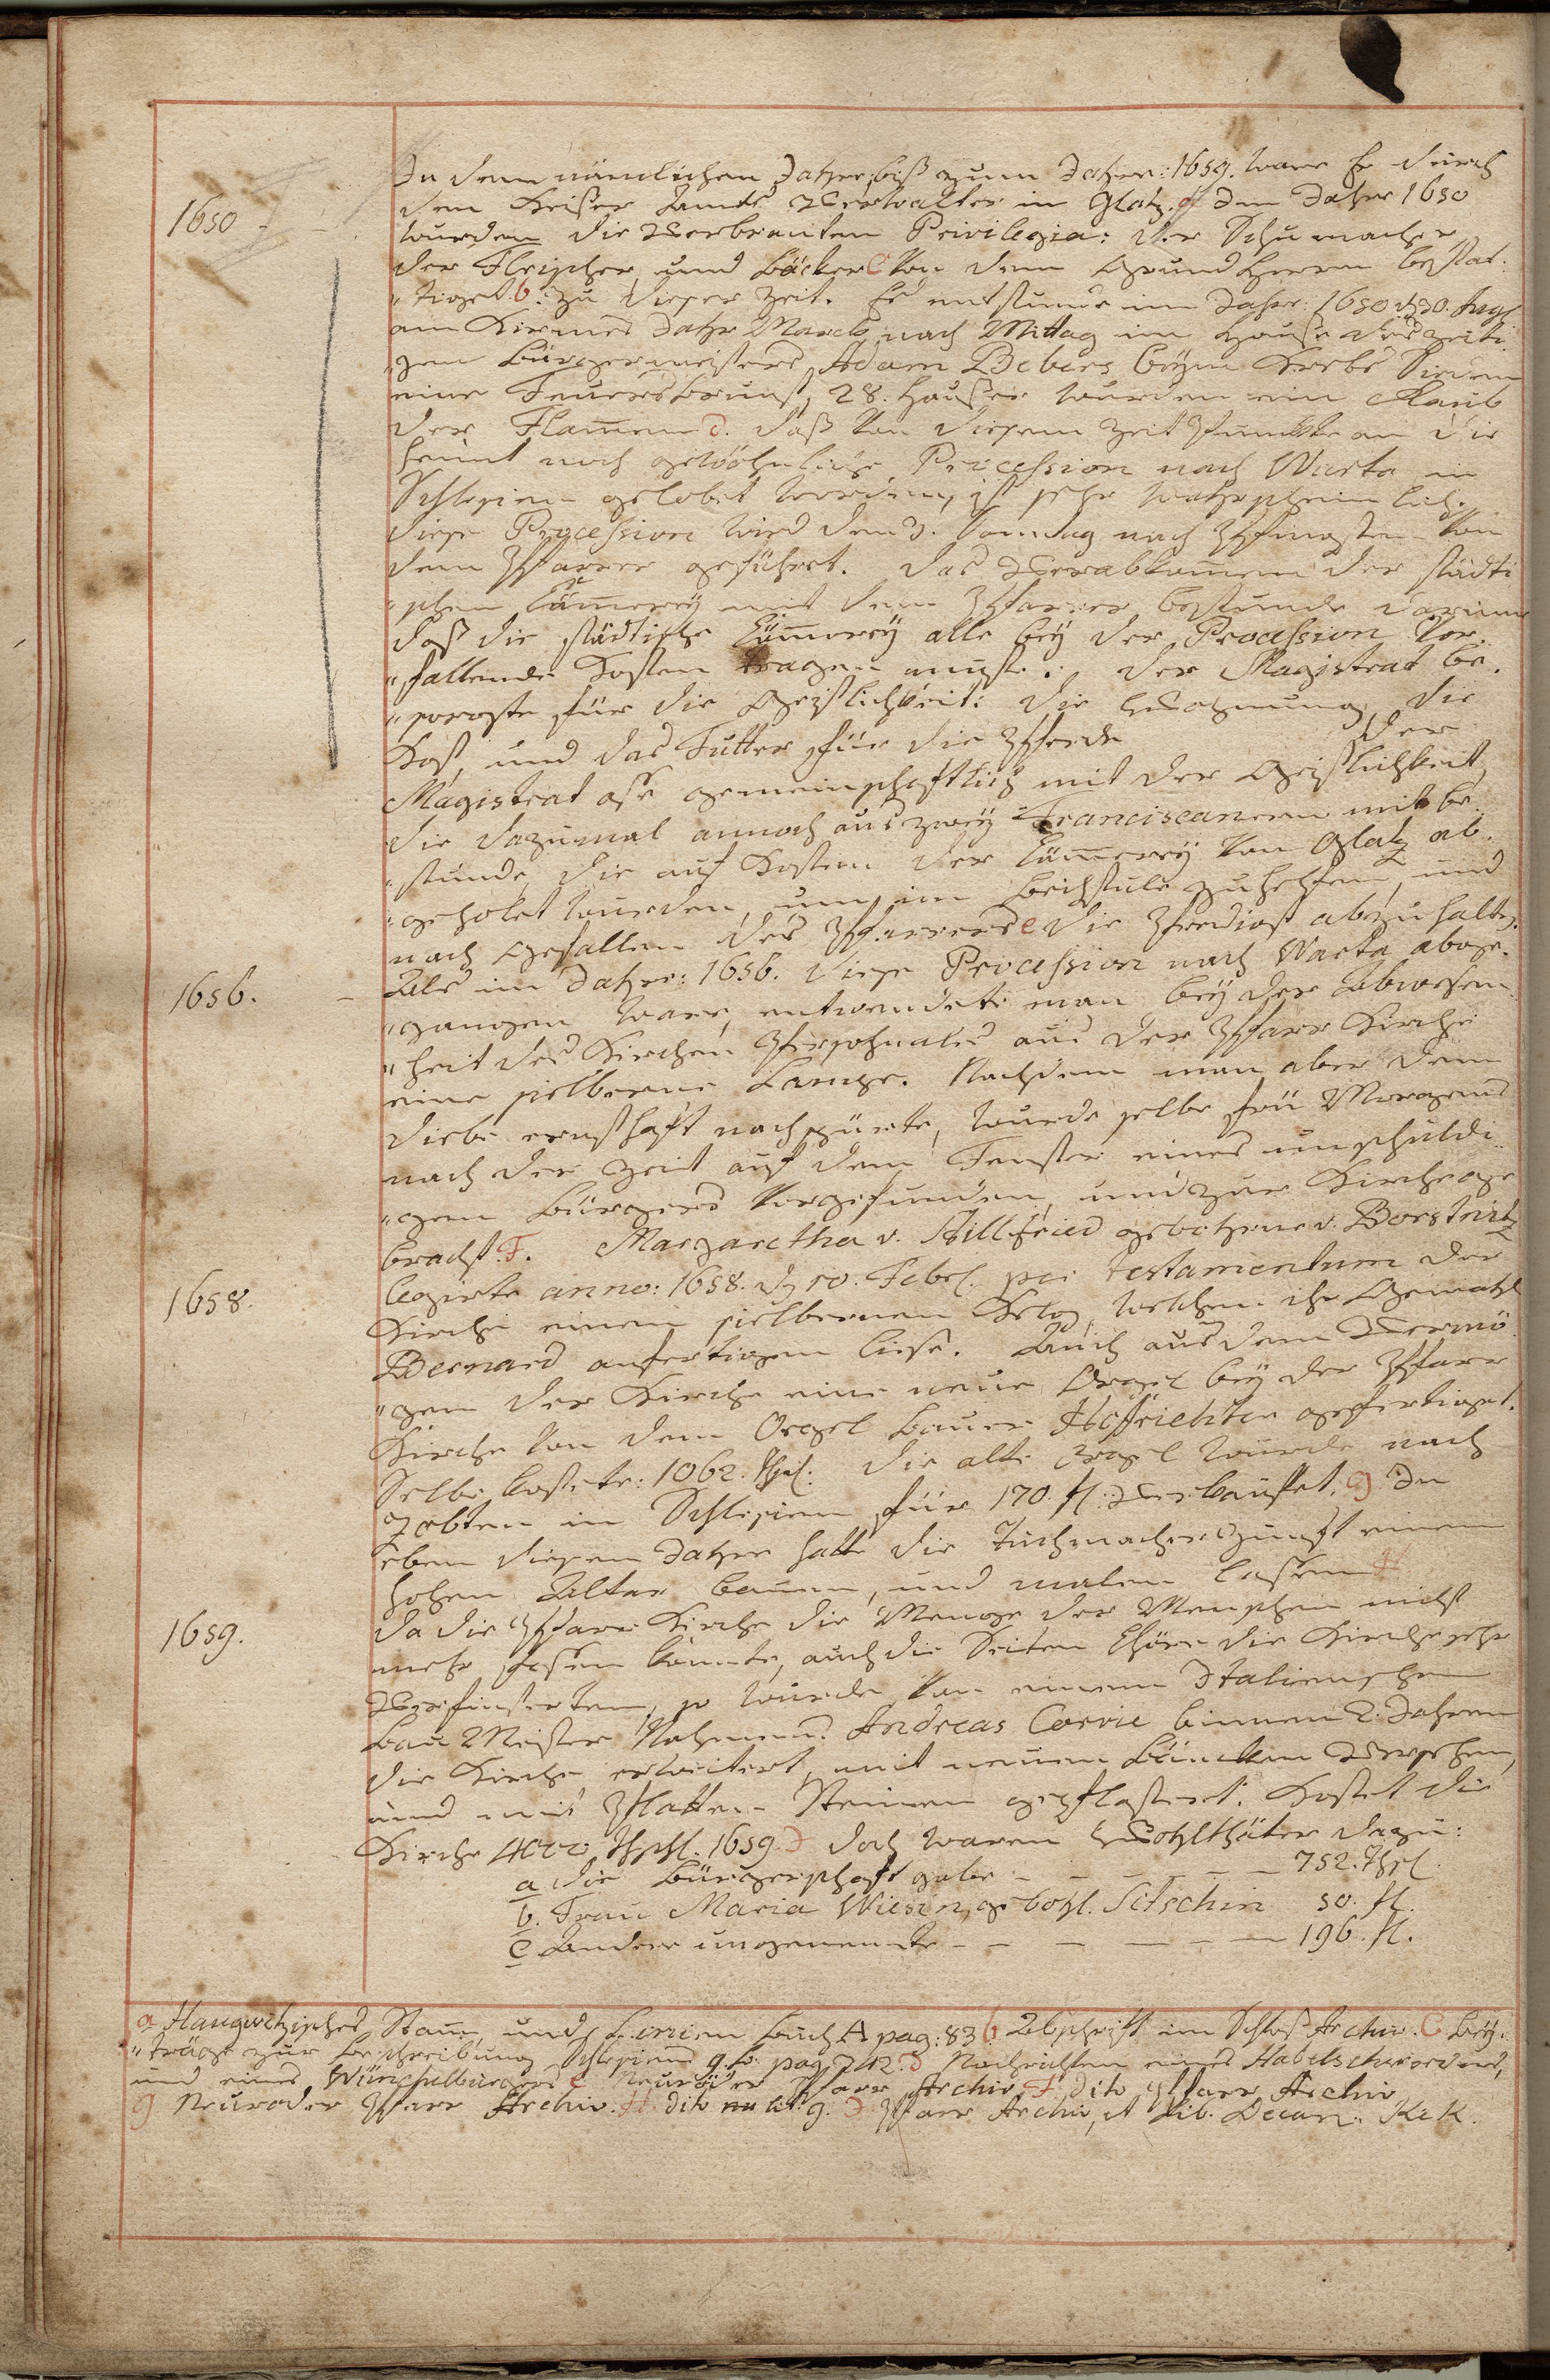 In dem nämlichen Jahre biß zum Jahre: 1659. ware Er durch
den Keiser Amts Verwalter in Glatz. a. Im Jahre 1650
1650
wurden die Verbranten Privilegia: der Schumacher
der Fleischer und Bäcker C von dem Grund Herrn bestät-
"tiget. b. zu dieser Zeit. Es entstunde im Jahre: 1650 d. 30. Aug.
am Kirmes Jahr Marck nach Mittag im Hause des Zeiti-
"gen Bürgermeisters Adam Bebers beym Krebs Sieden
eine Feuersbrunst, 28. Häußer wurden ein Raub
der Flammen d. Daß von diesem Zeit Punkte an die
heünt noch gewöhnliche Procession nach Warta in
Schlesien gelobet worden, ist sehr wahrscheinlich.
diese Procession wird den 3. Sonntag nach Pfingsten von
dem Pfarrer geführet. das Verabkommen der städti
"schen Cämmerey mit dem Pfarrer bestunde darinne
daß die städtische Cämmerey alle bey der Procession vor-
"fallende Kosten tragen muste: der Magistrat be-
"sorgte für die Geistlichkeit: die Wohnung, die
Kost, und das Futter für die Pferde der
Magistrat aße gemeinschaftlich mit der Geistlichkeit,
die dazumal annoch aus zwey Franciscanern mit be-
"stunde, die auf Kosten der Cämmerey von Glatz ab-
"geholet wurden, um im Beichstule zu helfen, und
nach Gefallen des Pfarrers e die Predigt abzuhalten.
1656.
Als im Jahre: 1656. diese Procession nach Warta abge-
"gangen ware, entwendete man bey der Abwesen-
"heit des Kirchen Persohnales aus der Pfarr Kirche
eine silberne Lampe. Nachdem man aber dem
Diebe ernsthaft nachspürte, wurde selbe frü Morgens
nach der Zeit auf dem Fenster eines unschuldi-
"gen Bürgers vorgefunden, und zur Kirche ge-
bracht. F. Margaretha v. Stillfried gebohrne v. Borstnitz
1658.
legirte anno: 1658. d. 10. Febr. per testamentum der
Kirche einen silbernen Kelch, welchen ihr Gemahl
Bernard anfertigen ließe. Auch aus dem Vermö-
"gen der Kirche eine neue Orgel bey der Pfarr
Kirche von dem Orgel Bauer Hoffrichter gefertiget.
Selbe kostete: 1062. Thl. die alte Orgel wurde nach
Zobten in Schlesien für 170. fl. Verkauffet. g In
eben diesem Jahre hatte die Tuchmacher Zunft einen
hohen Altar bauen, und malen lassen H
1659.
Da die Pfarr Kirche die Menge der Menschen nicht
mehr fassen konnte, auch die Seiten Chöre die Kirche sehr
Verfinsterten, so wurde von einem Italienschen
Bau Meister Nahmens Andreas Corvie binnen 2. Jahren
die Kirche erweitert, mit neuen Bäncken Versehen,
und mit Platten Steinen gepflastert. Kostet die
Kirche 4000 Thl. 1659. J doch waren Wohlthäter dazu:
a die Bürgerschaft gabe - - - - - - 752. Thl.
b. Frau Maria Wiesen, gebohl. Sitschin 50. fl.
c Andere ungenennte - - - - - - 196. fl.
a Haugwitzisches Stamm und Linien Buch A pag: 83 b Abschrift im Schloß Archiv. C Bey-
"träge zur Beschreibung Schlesiens 9. B. pag 242. d Nachrichten eines Habelschwerders,
und eines Wünschelburgers e Neuroder Pfarr Archiv. F dito Pfarr Archiv
g Neuroder Pfarr Archiv. H dito lit. g. J Pfarr Archiv, et Lib. Decan. K et K.